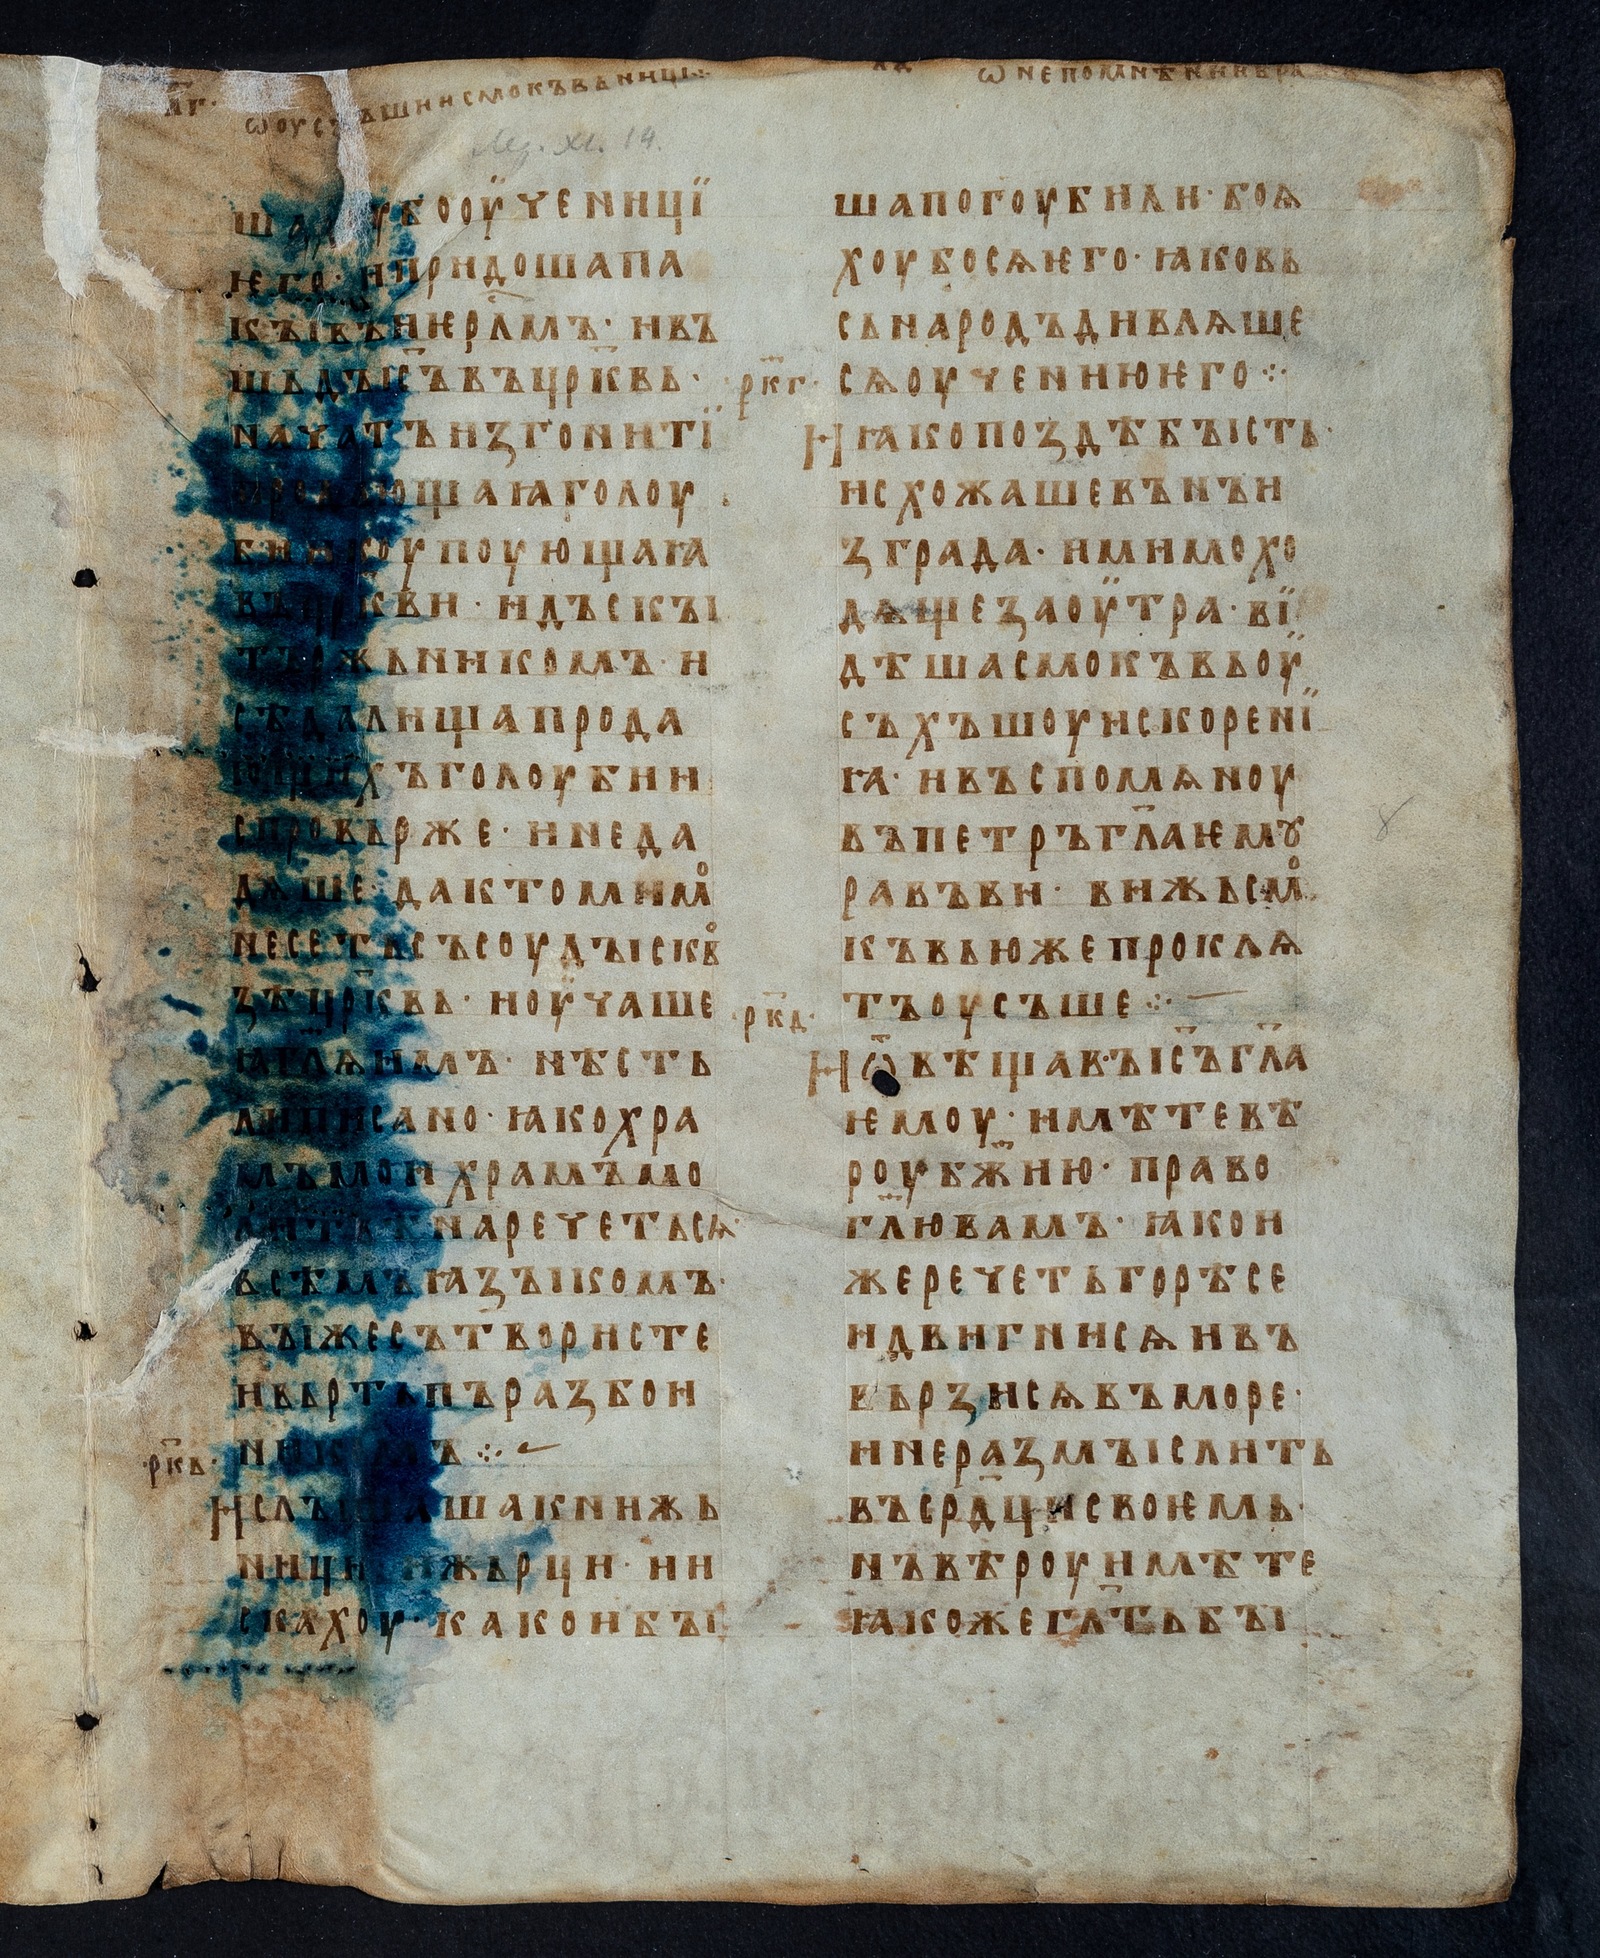 л҃г·
ѡ оусъшии смокъвьници:·
л҃д
ѡ не помнѣнии вра
Мр. XI. 14.
шаа убооӱченицї
ѥго· ипридошапа
кꙑвъиѥрл҃мъ· ивъ
шьдъіс҃ъвъцр҃квь·
начатъизгонитї
продающаꙗголоу
бииꙁкоупоующаꙗ
въцр҃кви· идъскꙑ
тържьникомъ· и
сѣдалищапрода
ющихъголоуби
спровьрже· инеда
дѧше· дактомимо
несетьсъсоудꙑскво
зѣцр҃квь· ноӱчаше
ꙗгл҃ѧимъ· нѣсть
липисано· ꙗкохра
мъмоихрамъмо
литвѣнаречетьсѧ·
всѣмъꙗзꙑкомъ·
вꙑжесътвористе
ивьртьпъразбои
никомъ :·
·рк҃в·
Ислꙑшашакнижь
ници ижьрци· ии
скахоу· какоибꙑ
шапогоубили· боꙗ
хоубосѧѥго· ꙗковь
сьнародъдивлѧше
·рк҃г·
сѧоучениюѥго :·
Иꙗкопоздѣбꙑсть·
исхожашевънъи
зграда· имимохо
дѧщезаоӱтра· вї
дѣшасмокъвьоӱ
съхъшоуискоренї
ꙗ· ивъспомѧноу
въпетръгл҃аѥмꙋ
равъви· вижьсмо
къвьюжепроклѧ
тъоусъше :·
·рк҃д·
Иѿвѣщавъіс҃ъгл҃а
ѥмоу· имѣтевѣ
роубж҃ию· право
гл҃ювамъ· ꙗкои
жеречетьгорѣсе
идвигнисѧивъ
вьрзисѧвъморе·
инеразмꙑслить
въсрд҃цисвоѥмь·
нъвѣроуимѣте
ꙗкожегл҃тьбꙑ
8